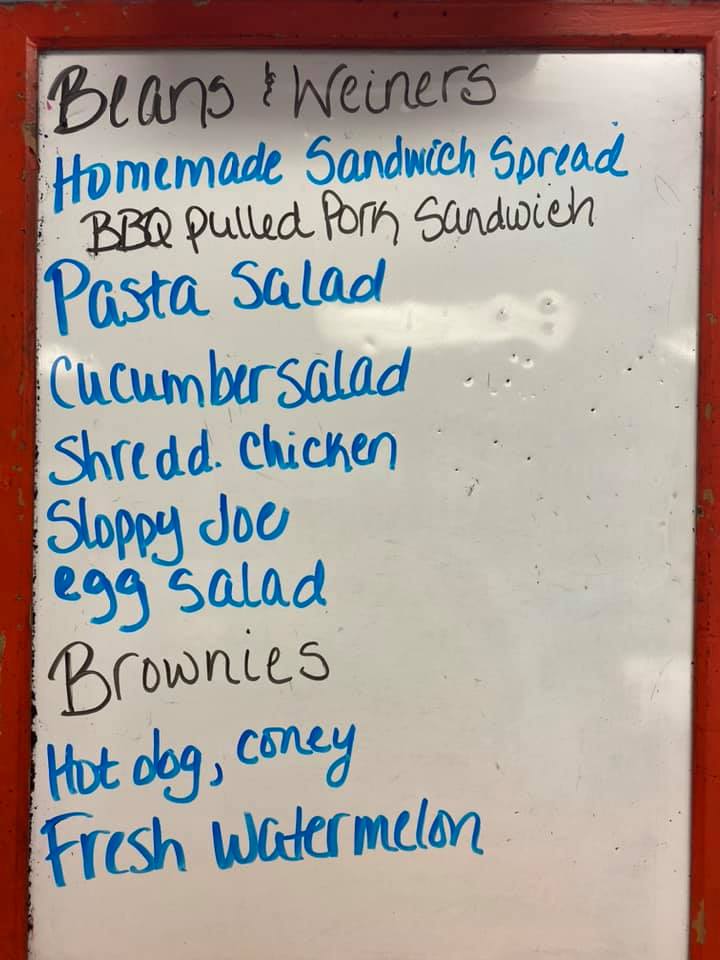 Beans & Weiners
Homemade Sandwich Spread
BBQ Pulled Pork Sandwich
Pasta Salad
Cucumber Salad
Shredd. Chicken
Sloppy Joe
egg salad
Brownies
Hot dog, coney
Fresh Watermelon